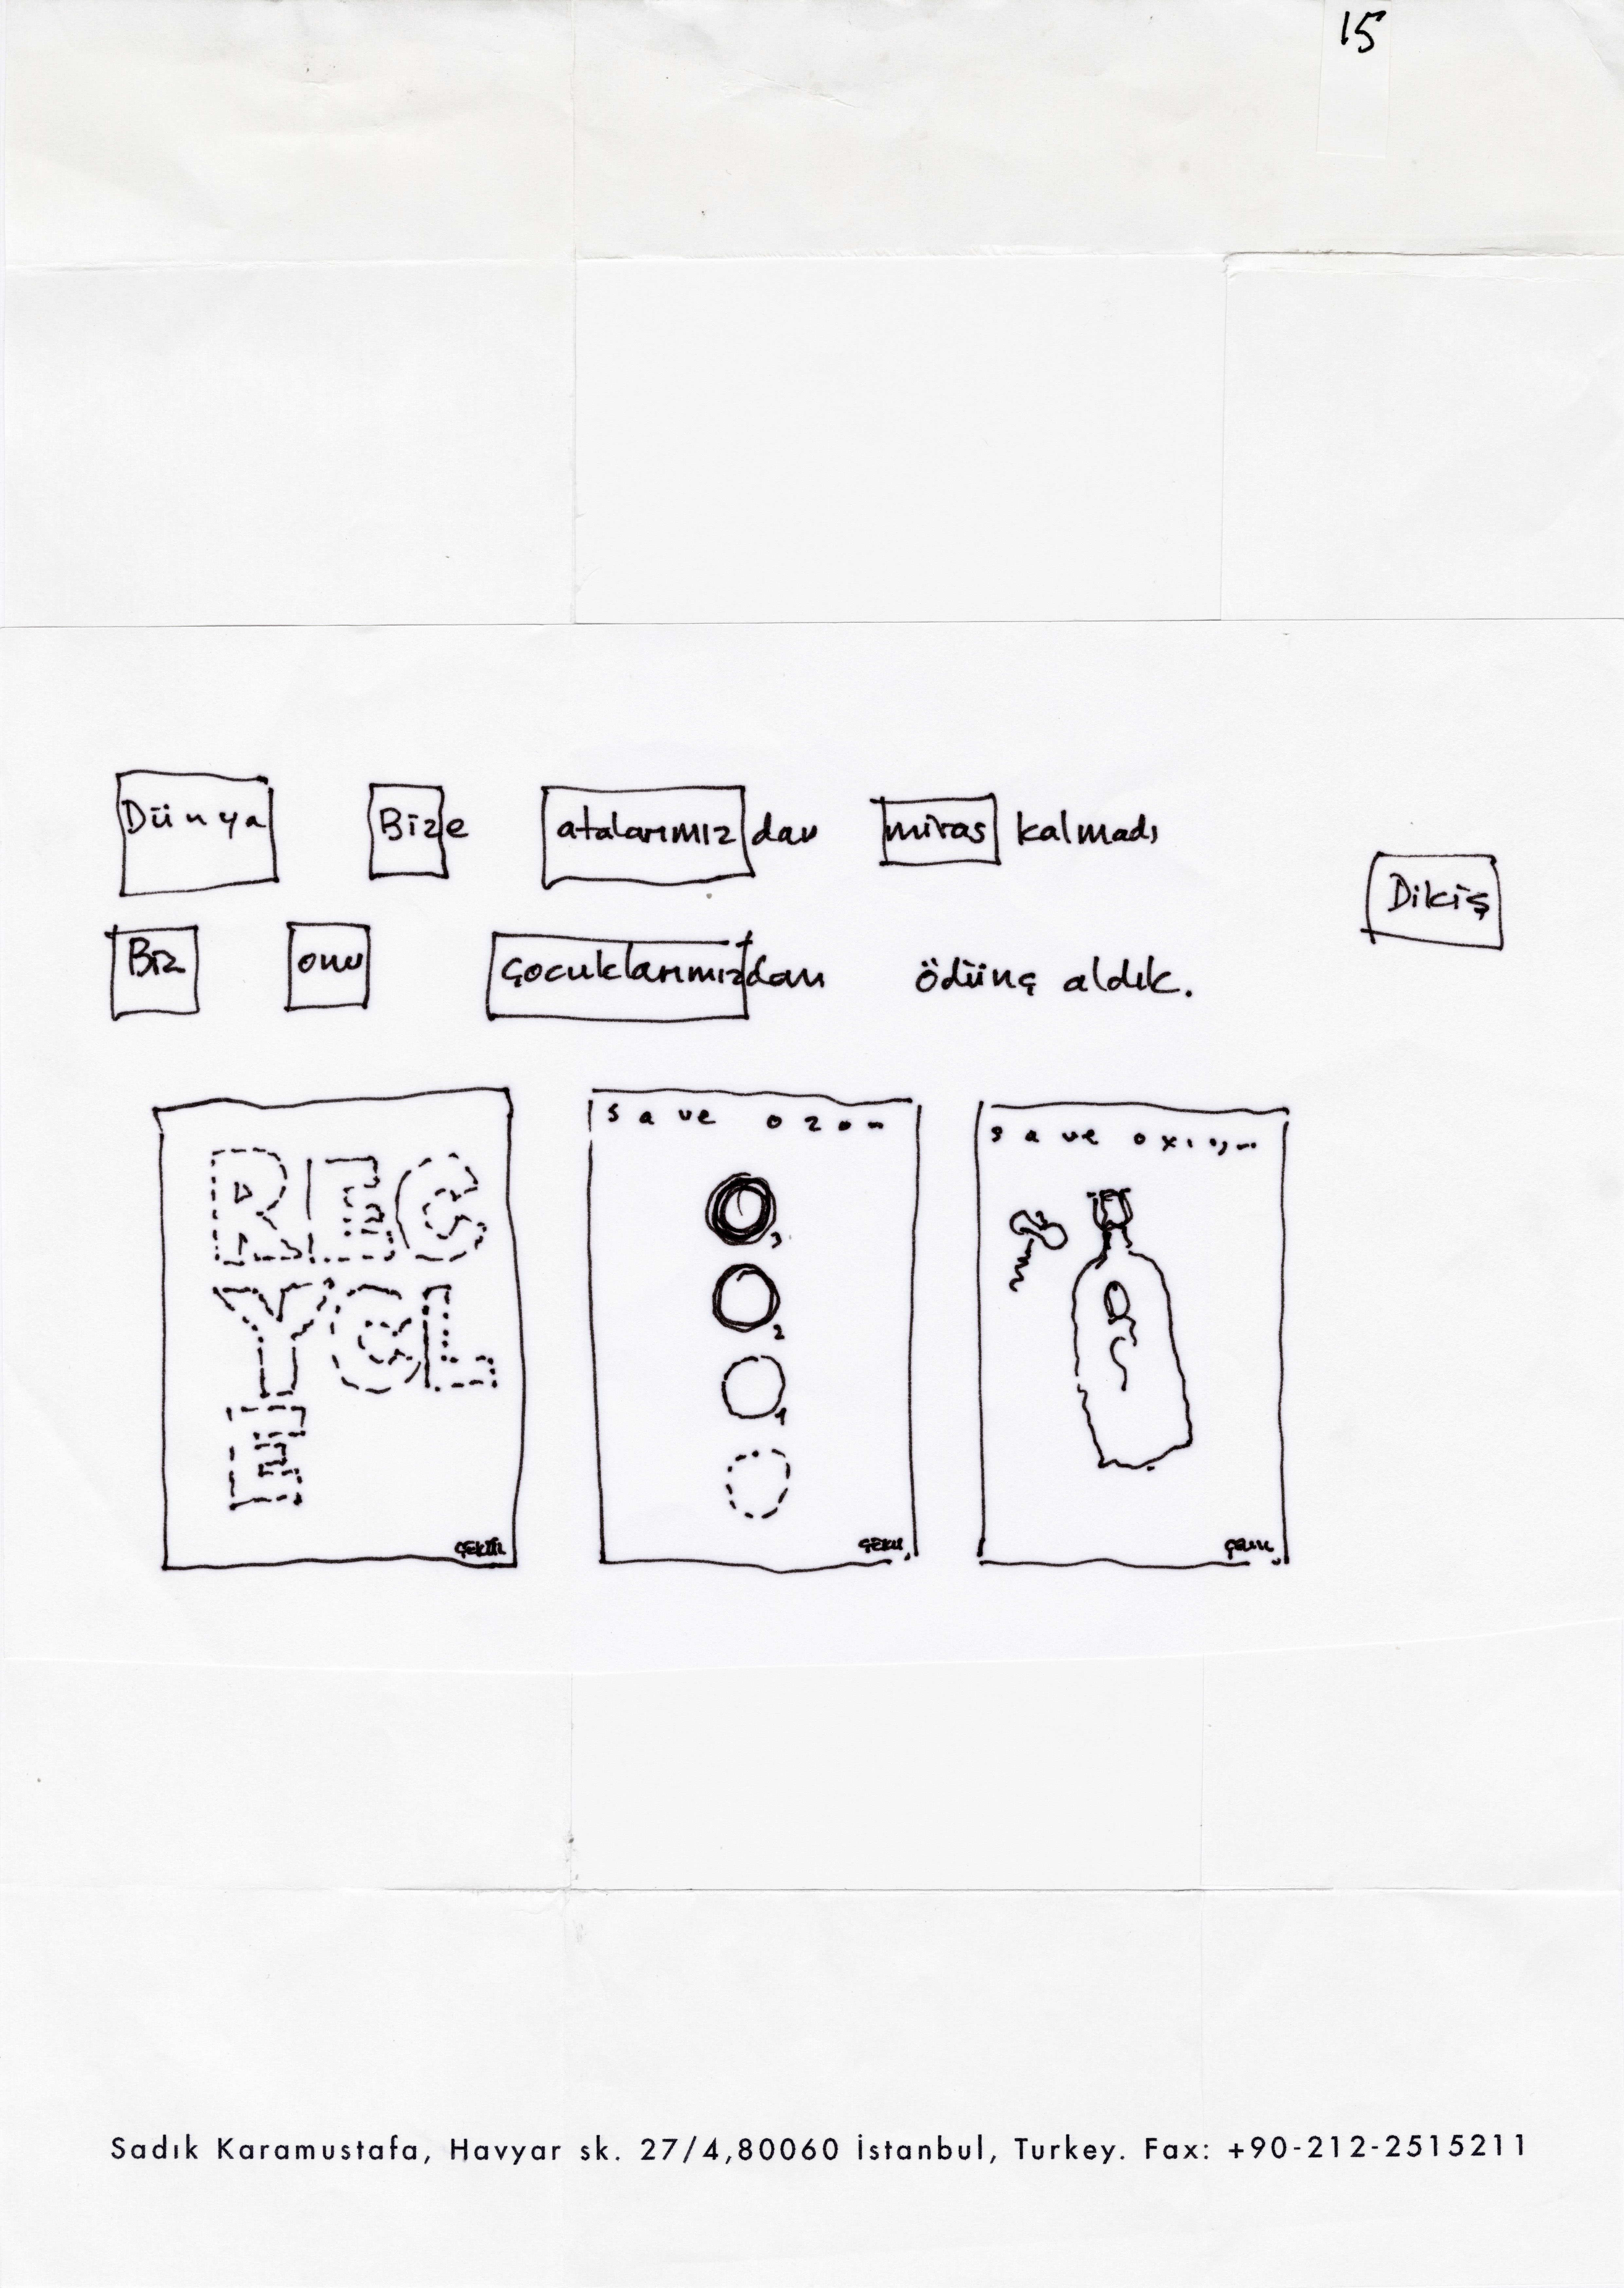 15
Dünya Bize atalarımızdan miras kalmadı
Dikiş
Biz onu çocuklarımızdan ödünç aldık.
save ozon
save
REC
YCL
E
3
2
1
Sadık Karamustafa, Havyar sk. 27/4,80060 İstanbul, Turkey. Fax: +90-212-2515211